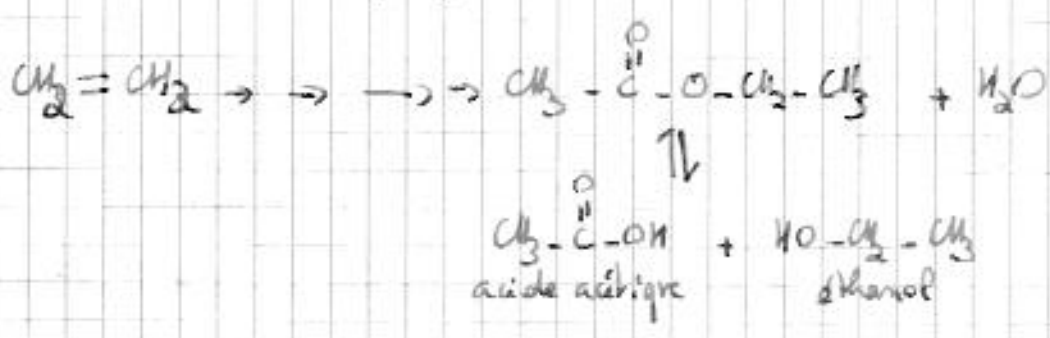 O
CH2 = CH2 → → → → CH3 - C - O - CH2 - CH3 + H2O
O
CH3 - C - OH + HO - CH2 - CH3
acide acétique éthanol